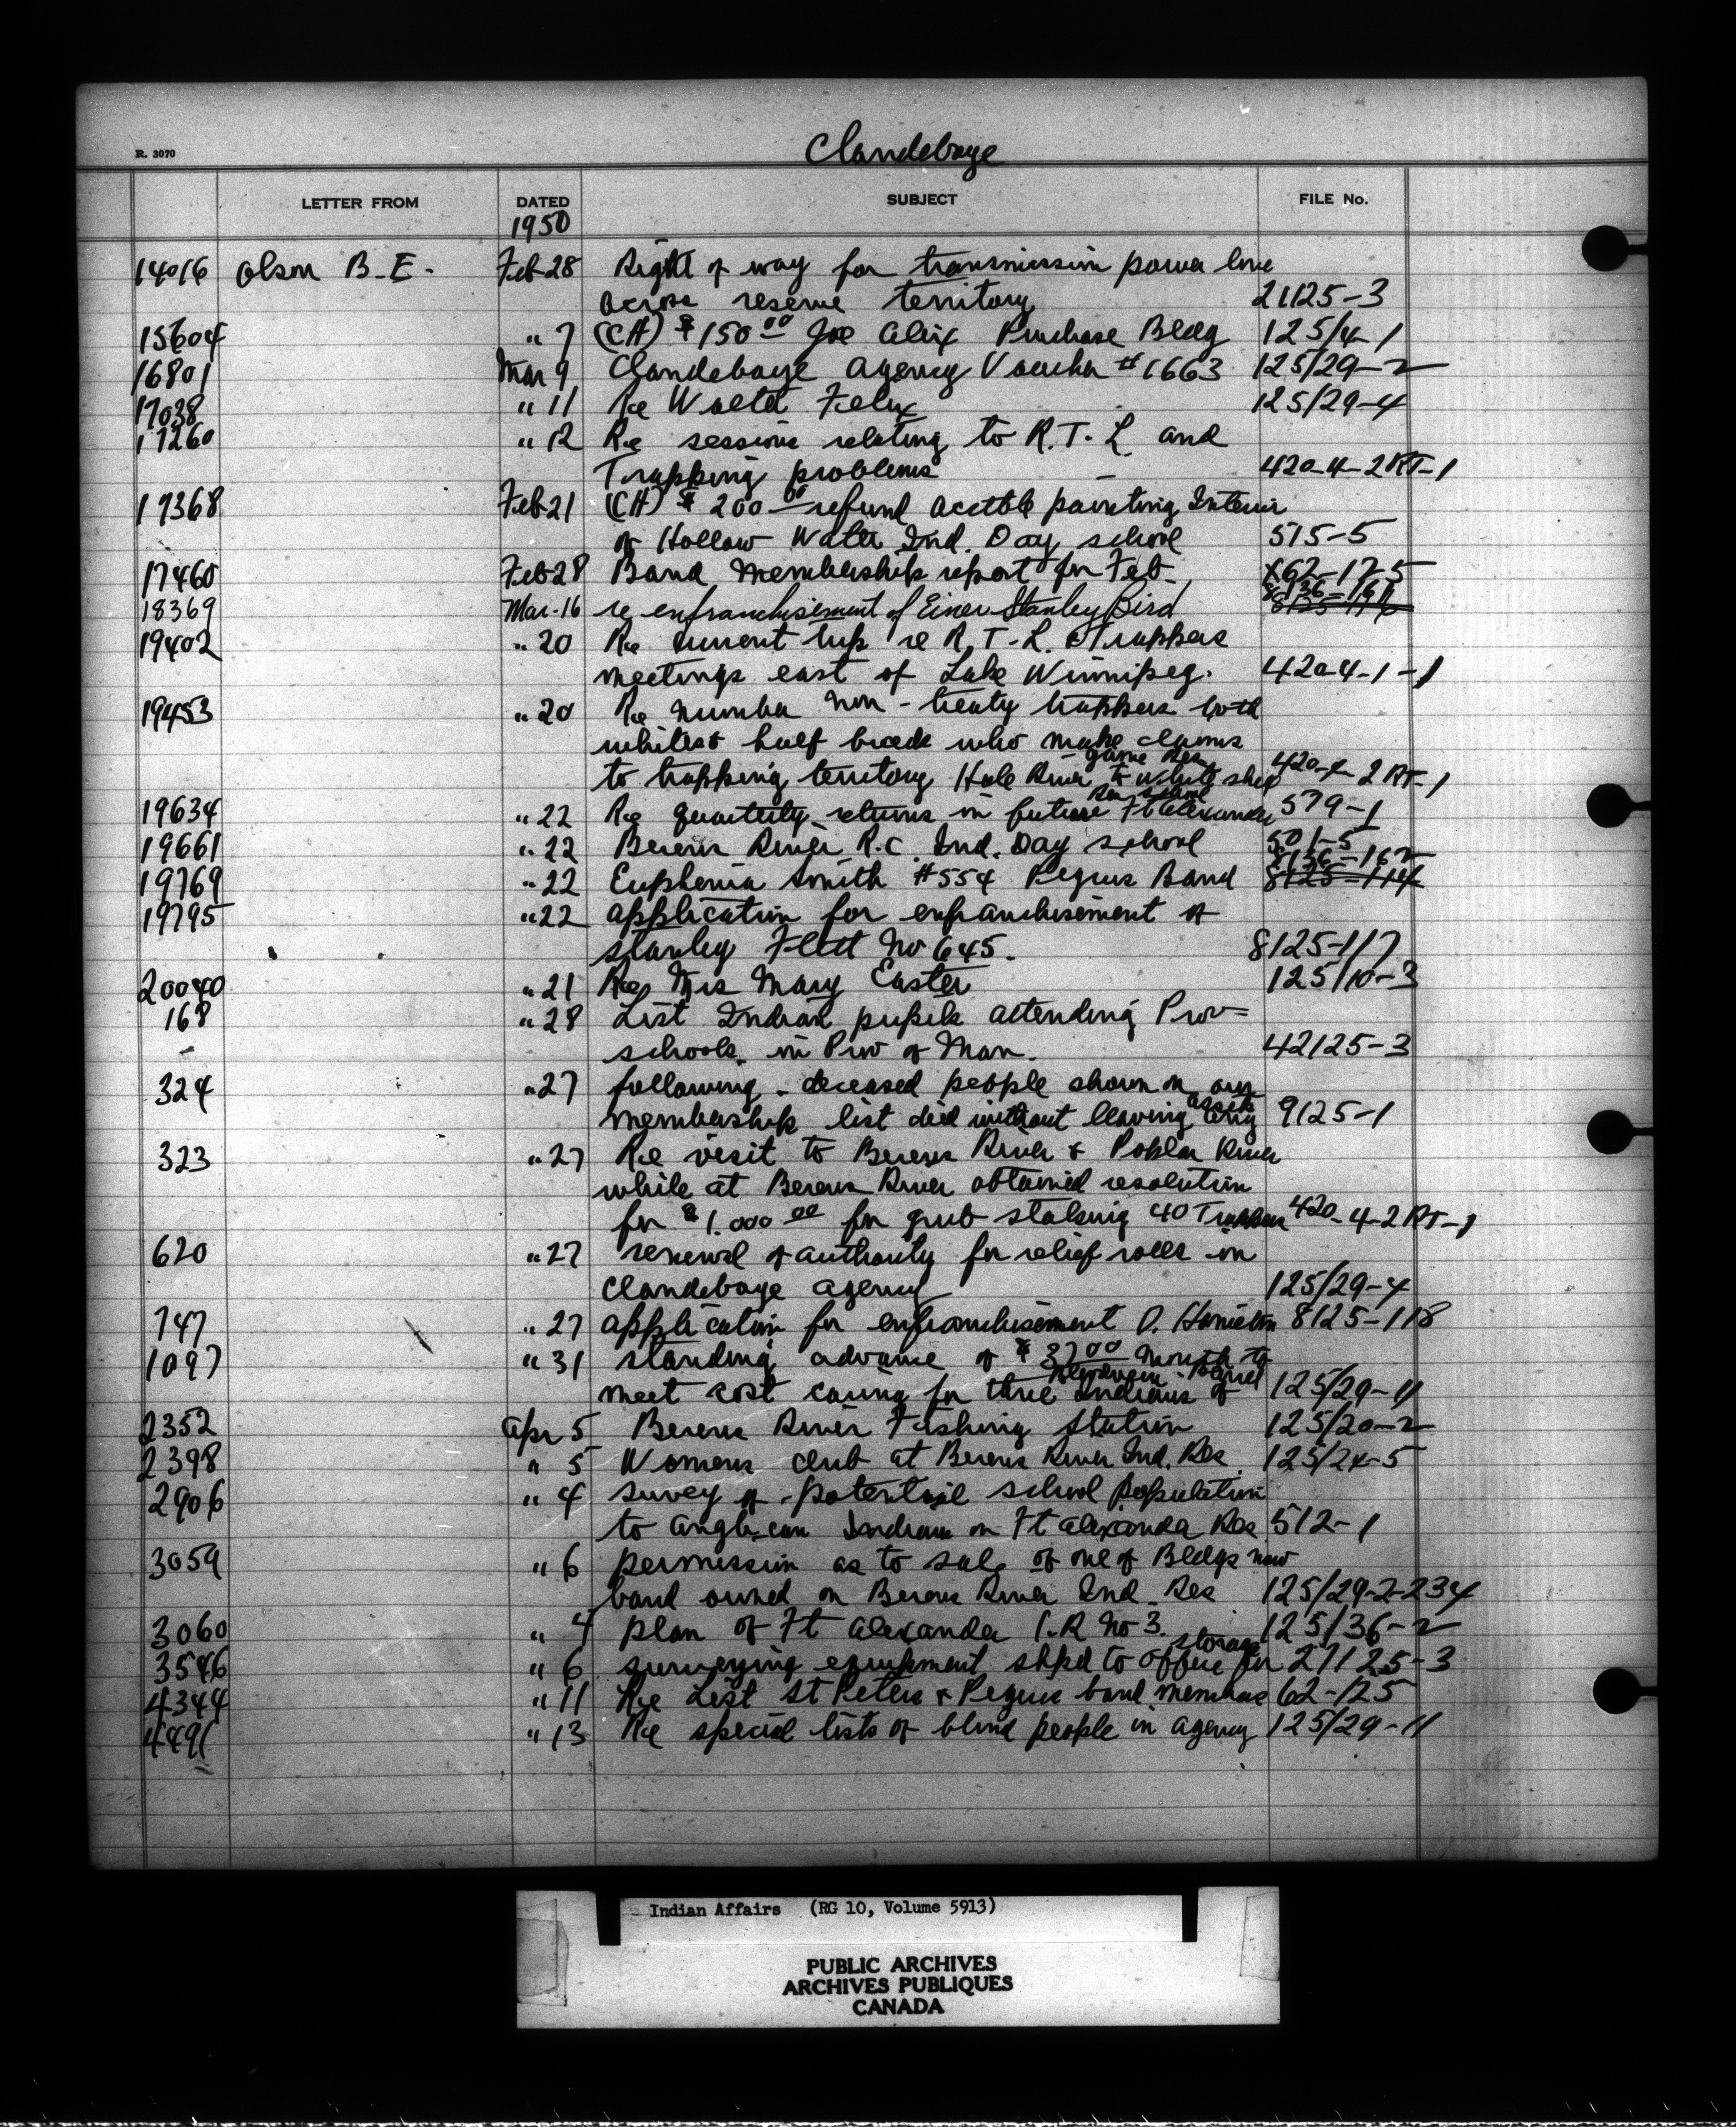 R. 3070
Clandeboye
LETTER FROM DATED SUBJECT FILE No.
1950
14016 Olson B.E. Feb 28 Right of way for transmission power line
across reserve territory 21125-3
15604 " 7 (CH) $150.00 Joe Alix Purchase Bldg 125/4-1
16801 Mar 9 Clandeboye Agency Voucher #1663 125/29-2
17038 " 11 Re Walter Felix 125/29-4
17260 " 12 Re sessions relating to R.T.L and
Trapping problems 420-4-2RT-1
17368 Feb 21 (CH) $200.00 refund acctble painting Interior
of Hollow Water Ind. Day school 515-5
17460 Feb 28 Band Membership report for Feb. 62-17-5
18369 Mar. 16 re enfranchisement of Einer Stanley Bird 8136-161
19402 " 20 Re current trip re R.T.L. & Trappers
meetings east of Lake Winnipeg. 420-4-1-1
19453 " 20 Re number non-treaty trappers both
whites & half breeds who make claims
to trapping territory Hole River to white shell game Res 420-4-2RT-1
19634 " 22 Re quarterly returns in future Ft Alexander Res school 579-1
19661 " 22 Berens River R.C. Ind. Day school 501-5
19769 " 22 Euphemia Smith #554 Peguis Band 8136-162 8125-114
19795 " 22 application for enfranchisement of
Stanley Flett No 645. 8125-117
20040 " 21 Re Mrs Mary Easter 125/10-3
168 " 28 List Indian pupils attending Prov=
schools in Prov of Man. 42125-3
324 " 27 following - deceased people shown on our
membership list died without leaving any assets 9125-1
323 " 27 Re visit to Berens River & Poplar River
while at Berens River obtained resolution
for $1,000.00 for grub staking 40 Trappers 420-4-2RT-1
620 " 27 renewal of authority for relief rolls in
Clandeboye agency 125/29-4
747 " 27 application for enfranchisement O. Hamelin 8125-118
1097 " 31 standing advance of $37.00 month to
meet cost caring for three Indians of 125/29-11
2352 Apr 5 Berens River Fishing Station 125/20-2
2398 " 5 Womens club at Berens River Ind. Res. 125/24-5
2906 " 4 survey of potential school population
to Anglican Indians on Ft Alexander Res 512-1
3059 " 6 permission as to sale of one of Bldgs now
band owned on Berens River Ind. Res 125/29-2-234
3060 " 4 plan of Ft Alexander I.R No 3. 125/36-2
3546 " 6 surveying equipment shpd to office for storage 27125-3
4344 " 11 Re List St Peters & Peguis band members 62-125
4491 " 13 Re special lists of blind people in agency 125/29-11
Indian Affairs (RG 10, Volume 5913)
PUBLIC ARCHIVES
ARCHIVES PUBLIQUES
CANADA